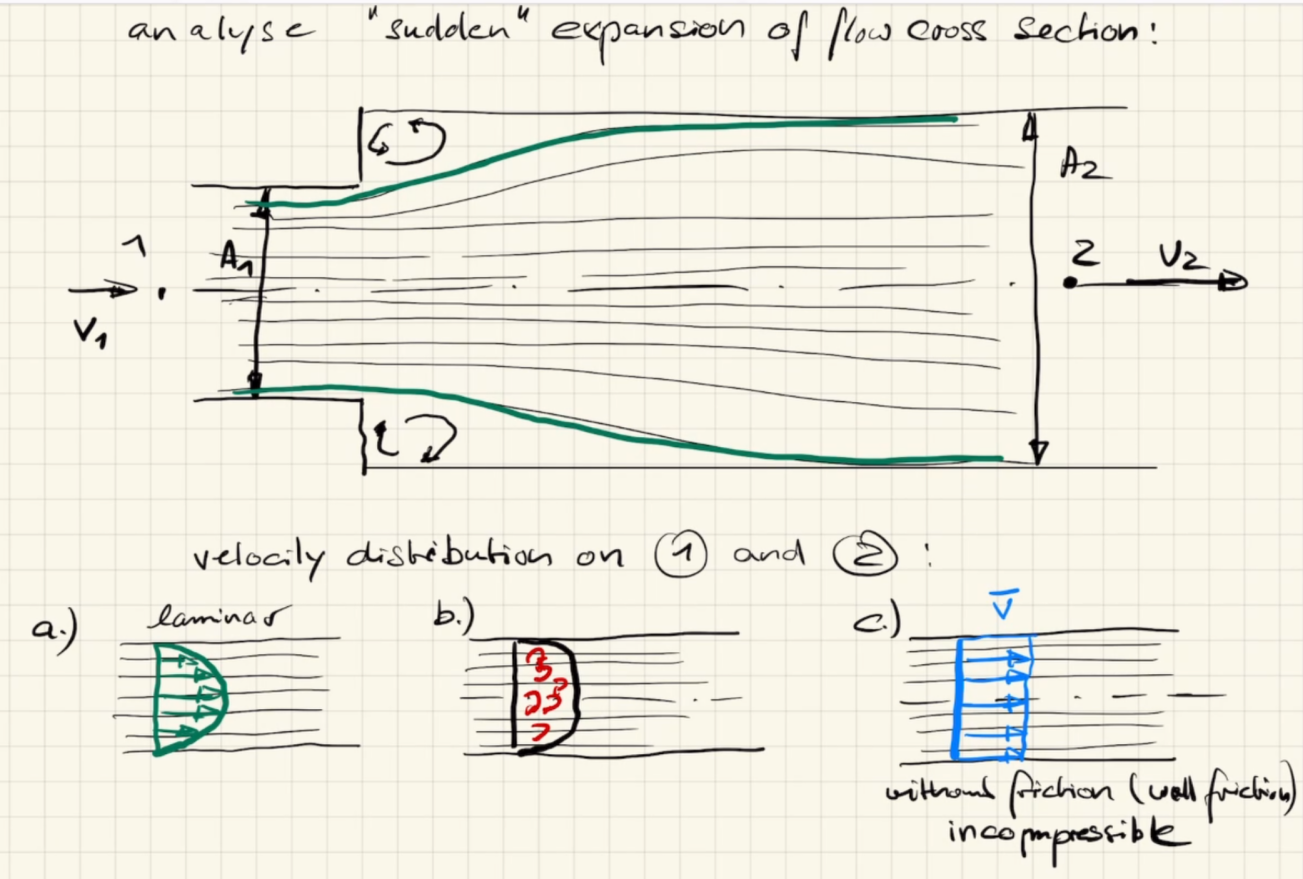 analyse "sudden" expansion of flow cross section:
A2
1
A1
2
V2
V1
velocity distribution on ① and ② :
a.) laminar
b.)
c.) V̄
without friction (wall friction)
incompmpressible